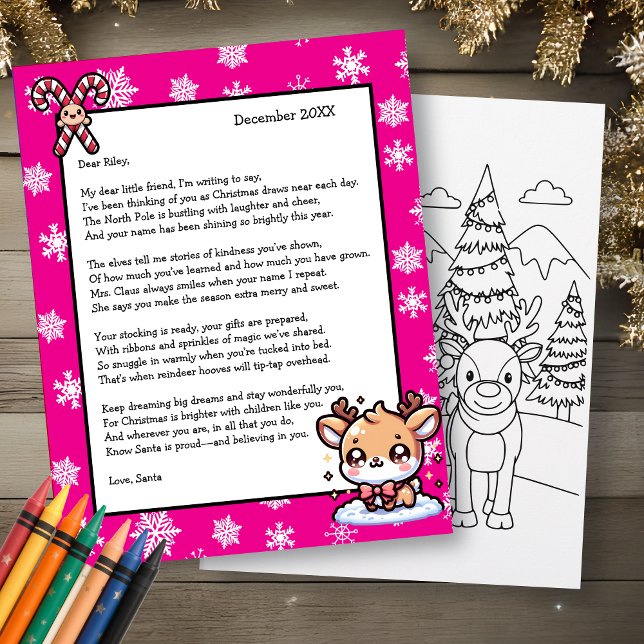 December 20XX
Dear Riley,
My dear little friend, I'm writing to say,
I've been thinking of you as Christmas draws near each day.
The North Pole is bustling with laughter and cheer,
And your name has been shining so brightly this year.
The elves tell me stories of kindness you've shown,
Of how much you've learned and how much you have grown.
Mrs. Claus always smiles when your name I repeat.
She says you make the season extra merry and sweet.
Your stocking is ready, your gifts are prepared,
With ribbons and sprinkles of magic we've shared.
So snuggle in warmly when you're tucked into bed.
That's when reindeer hooves will tip-tap overhead.
Keep dreaming big dreams and stay wonderfully you,
For Christmas is brighter with children like you.
And wherever you are, in all that you do,
Know Santa is proud—and believing in you.
Love, Santa